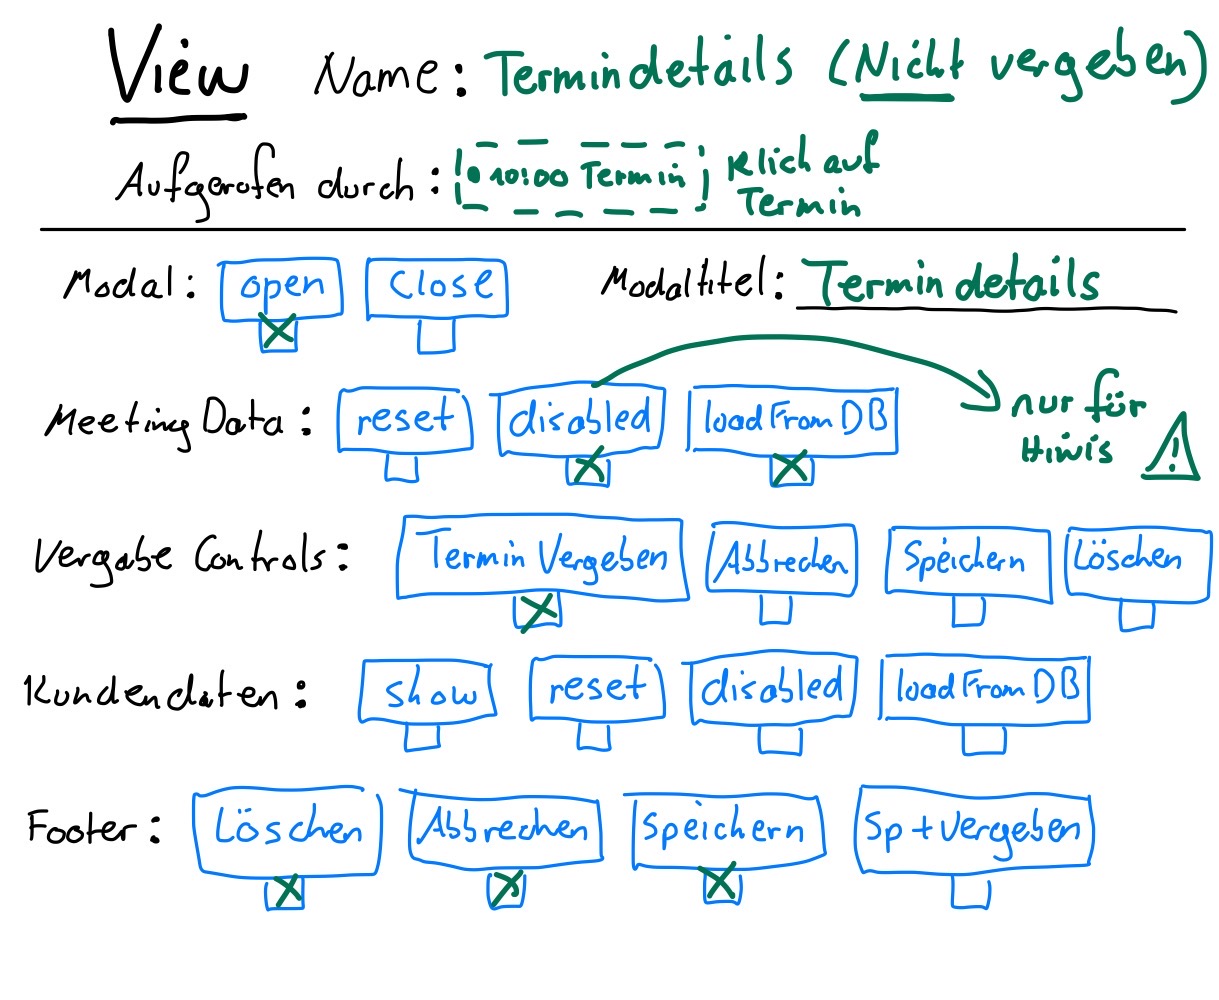 View Name: Termindetails (Nicht vergeben)
Aufgerufen durch: 10:00 Termin Klick auf
Termin
Modal: open Close Modaltitel: Termindetails
Meeting Data: reset disabled loadFromDB nur für
Hinwis
Vergabe Controls: Termin Vergeben Abbrechen Speichern Löschen
Kundendaten: show reset disabled loadFromDB
Footer: Löschen Abbrechen Speichern Sp + Vergeben